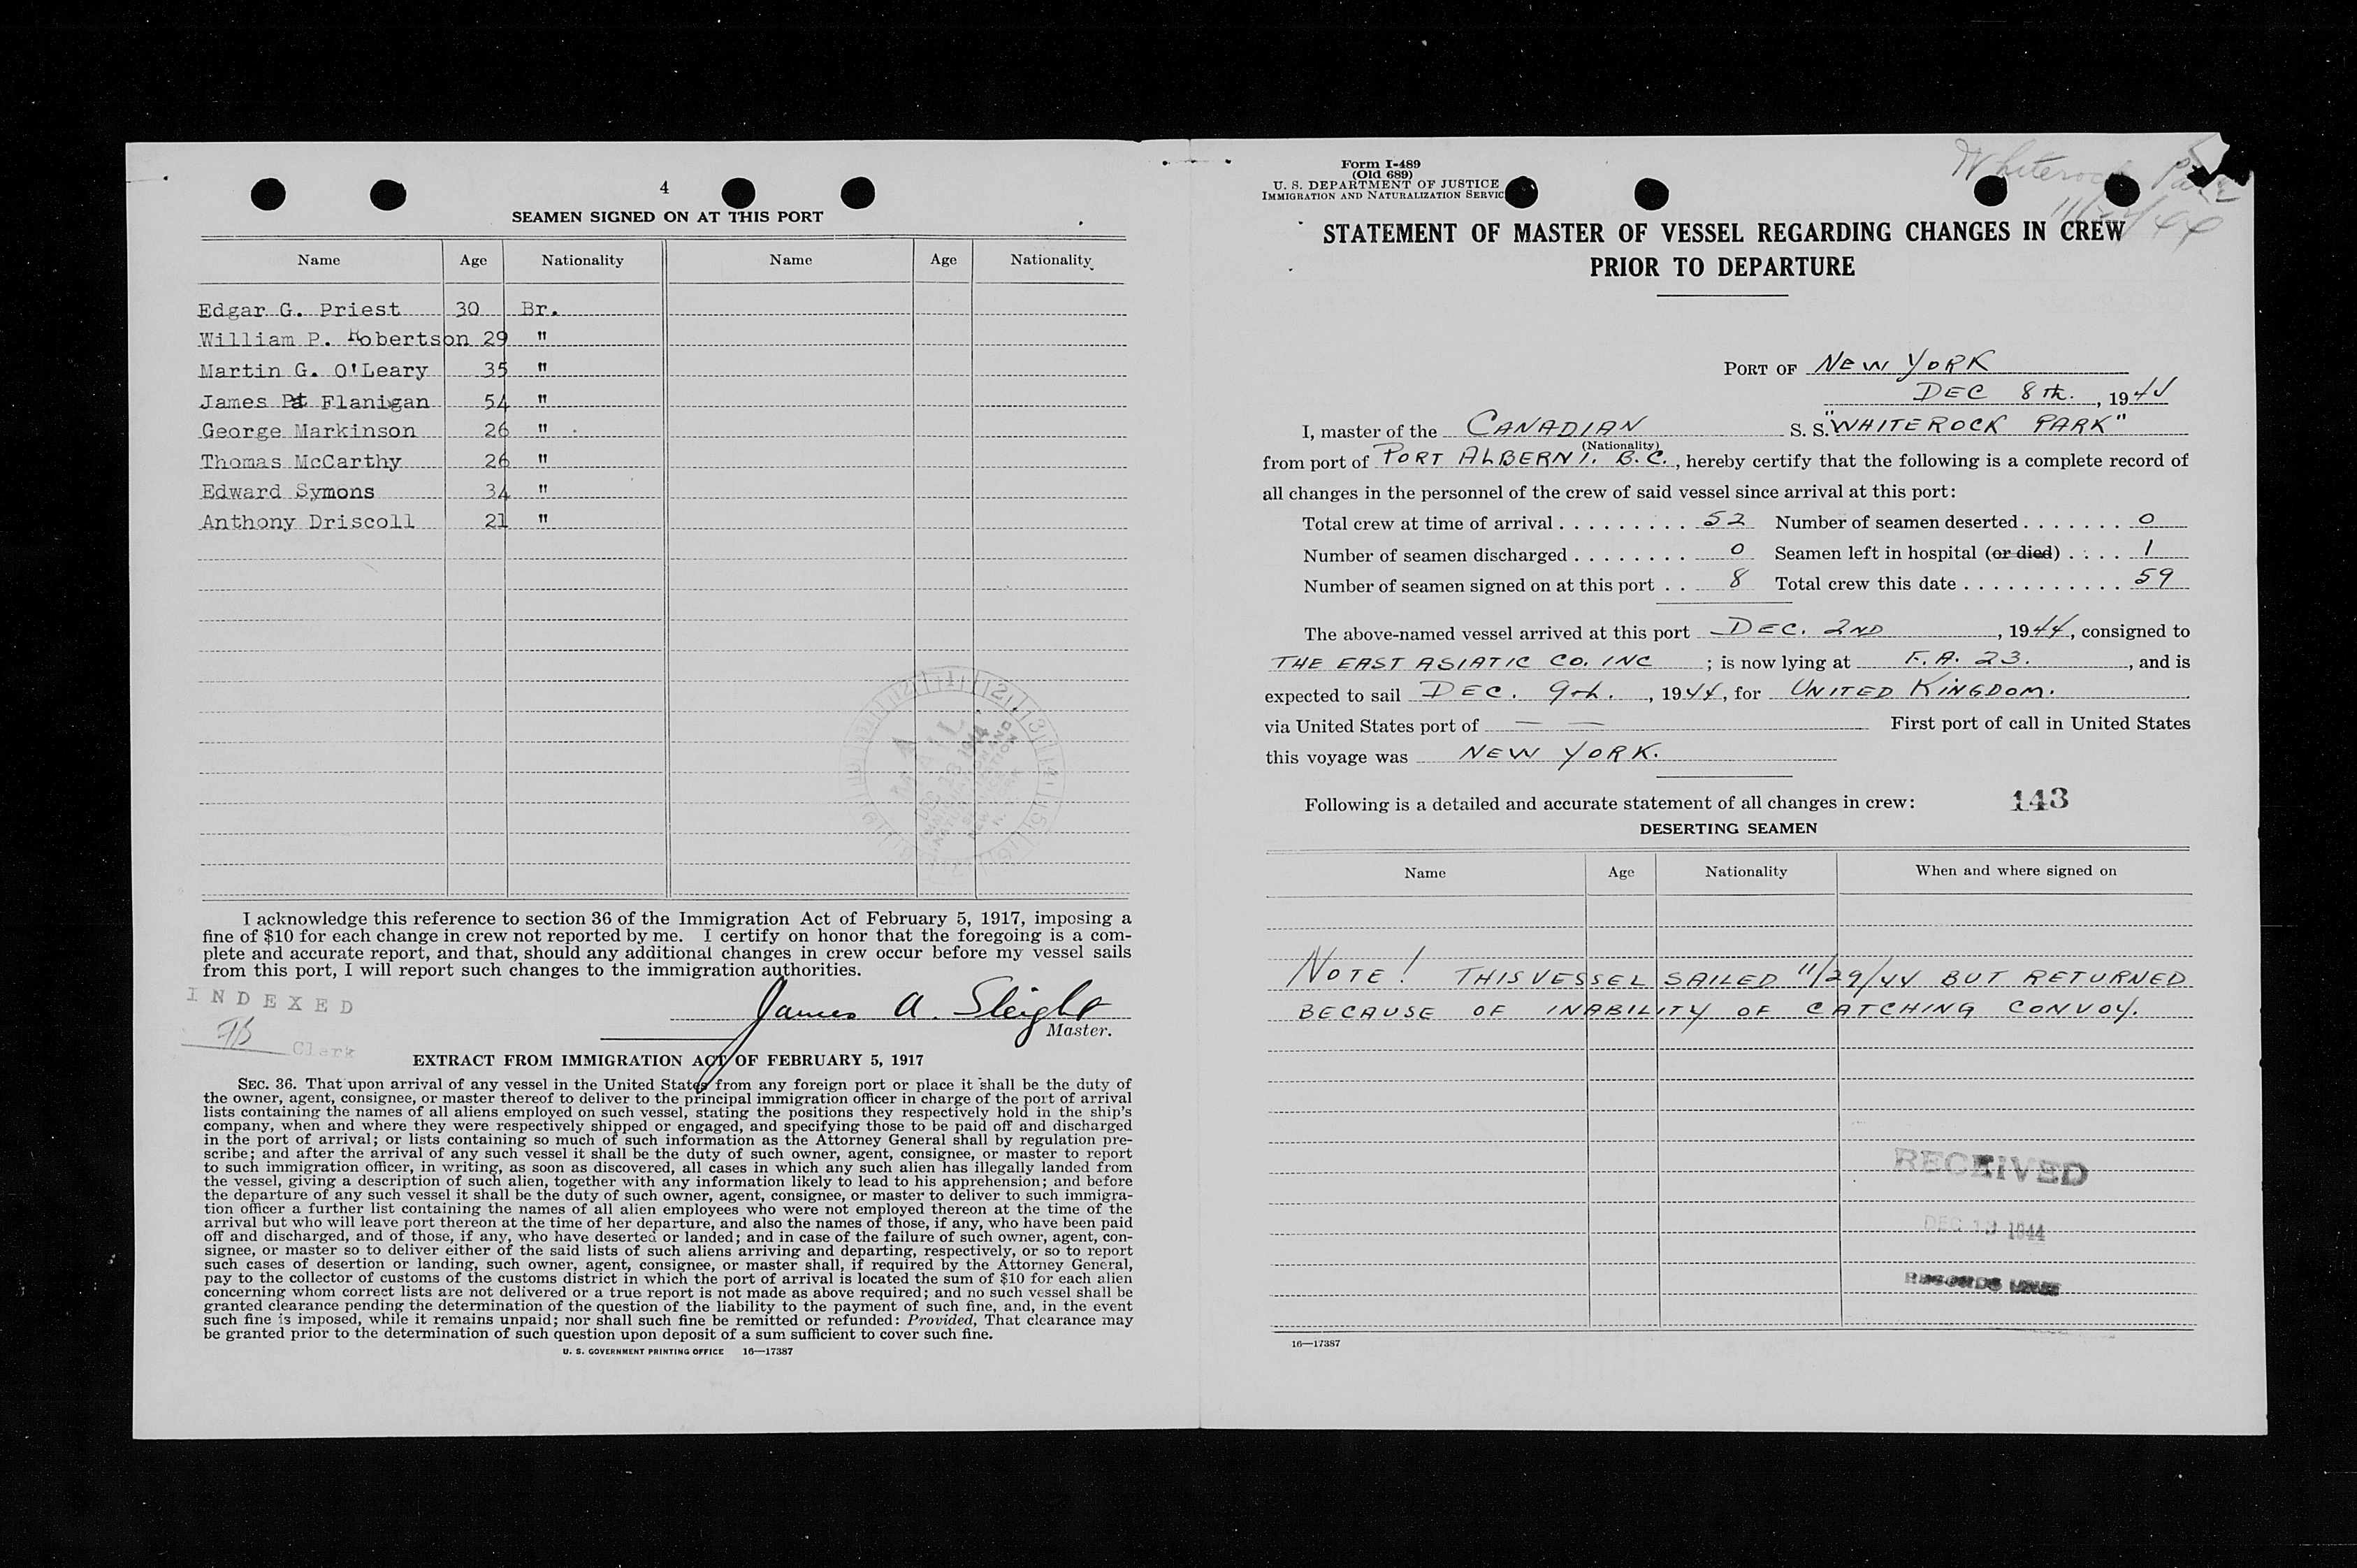 4
SEAMEN SIGNED ON AT THIS PORT
Name Age Nationality Name Age Nationality
Edgar G. Priest 30 Br.
William P. Robertson 29 "
Martin G. O'Leary 35 "
James Pat Flanigan 54 "
George Markinson 26 "
Thomas McCarthy 26 "
Edward Symons 34 "
Anthony Driscoll 21 "
I acknowledge this reference to section 36 of the Immigration Act of February 5, 1917, imposing a
fine of $10 for each change in crew not reported by me. I certify on honor that the foregoing is a com-
plete and accurate report, and that, should any additional changes in crew occur before my vessel sails
from this port, I will report such changes to the immigration authorities.
INDEXED
Clerk
James A. Sleight
Master.
EXTRACT FROM IMMIGRATION ACT OF FEBRUARY 5, 1917
SEC. 36. That upon arrival of any vessel in the United States from any foreign port or place it shall be the duty of
the owner, agent, consignee, or master thereof to deliver to the principal immigration officer in charge of the port of arrival
lists containing the names of all aliens employed on such vessel, stating the positions they respectively hold in the ship's
company, when and where they were respectively shipped or engaged, and specifying those to be paid off and discharged
in the port of arrival; or lists containing so much of such information as the Attorney General shall by regulation pre-
scribe; and after the arrival of any such vessel it shall be the duty of such owner, agent, consignee, or master to report
to such immigration officer, in writing, as soon as discovered, all cases in which any such alien has illegally landed from
the vessel, giving a description of such alien, together with any information likely to lead to his apprehension; and before
the departure of any such vessel it shall be the duty of such owner, agent, consignee, or master to deliver to such immigra-
tion officer a further list containing the names of all alien employees who were not employed thereon at the time of the
arrival but who will leave port thereon at the time of her departure, and also the names of those, if any, who have been paid
off and discharged, and of those, if any, who have deserted or landed; and in case of the failure of such owner, agent, con-
signee, or master so to deliver either of the said lists of such aliens arriving and departing, respectively, or so to report
such cases of desertion or landing, such owner, agent, consignee, or master shall, if required by the Attorney General,
pay to the collector of customs of the customs district in which the port of arrival is located the sum of $10 for each alien
concerning whom correct lists are not delivered or a true report is not made as above required; and no such vessel shall be
granted clearance pending the determination of the question of the liability to the payment of such fine, and, in the event
such fine is imposed, while it remains unpaid; nor shall such fine be remitted or refunded: Provided, That clearance may
be granted prior to the determination of such question upon deposit of a sum sufficient to cover such fine.
U. S. GOVERNMENT PRINTING OFFICE 16—17387
Form I-489
(Old 689)
U. S. DEPARTMENT OF JUSTICE
IMMIGRATION AND NATURALIZATION SERVIC
Whiterock Park
STATEMENT OF MASTER OF VESSEL REGARDING CHANGES IN CREW
PRIOR TO DEPARTURE
PORT OF NEW YORK
DEC 8th., 1944
I, master of the CANADIAN S. S. "WHITEROCK PARK"
(Nationality)
from port of PORT ALBERNI. B.C., hereby certify that the following is a complete record of
all changes in the personnel of the crew of said vessel since arrival at this port:
Total crew at time of arrival . . . . . . . . . 52 Number of seamen deserted . . . . . . . 0
Number of seamen discharged . . . . . . . . 0 Seamen left in hospital (or died) . . . . 1
Number of seamen signed on at this port . . 8 Total crew this date . . . . . . . . . . . 59
The above-named vessel arrived at this port DEC. 2ND, 1944, consigned to
THE EAST ASIATIC CO. INC ; is now lying at F. A. 23. , and is
expected to sail DEC. 9th. , 1944, for UNITED KINGDOM.
via United States port of — — First port of call in United States
this voyage was NEW YORK.
Following is a detailed and accurate statement of all changes in crew: 143
DESERTING SEAMEN
Name Age Nationality When and where signed on
NOTE! THIS VESSEL SAILED 11/29/44 BUT RETURNED
BECAUSE OF INABILITY OF CATCHING CONVOY.
RECEIVED
DEC 1944
RECORDS
16—17387